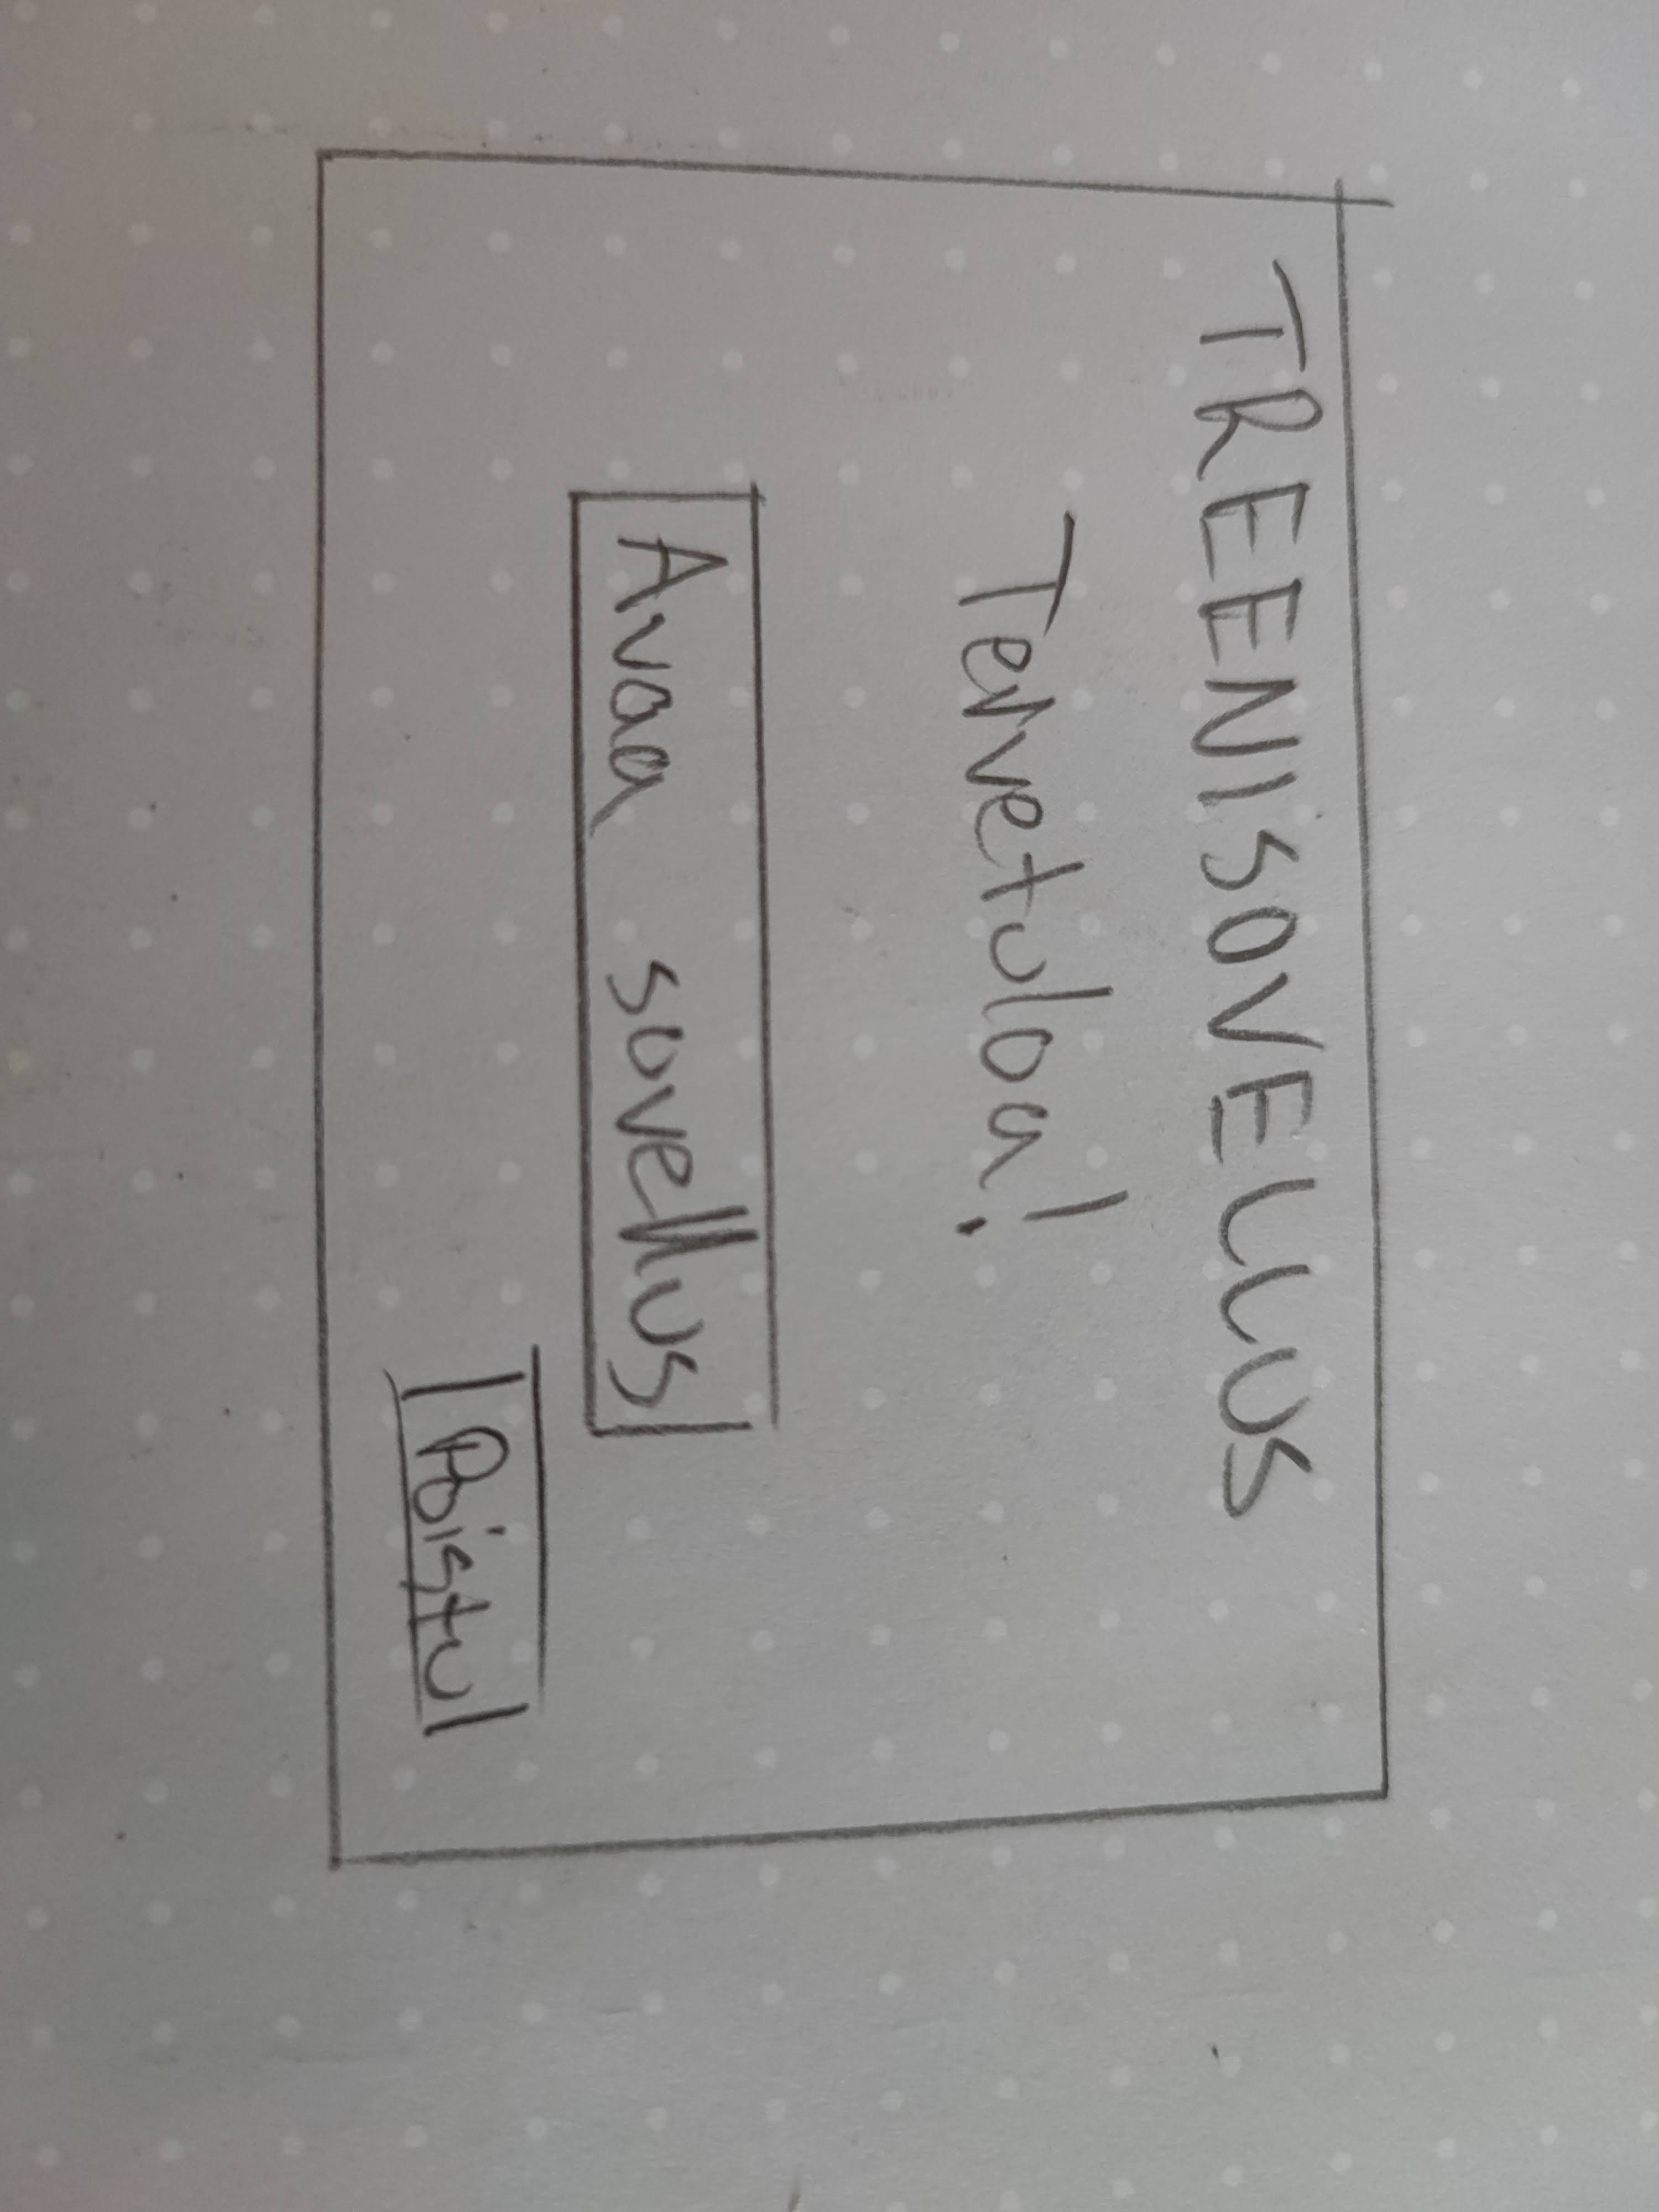 TREENISOVELLUS
Tervetuloa!
Avaa sovellus
Poistu